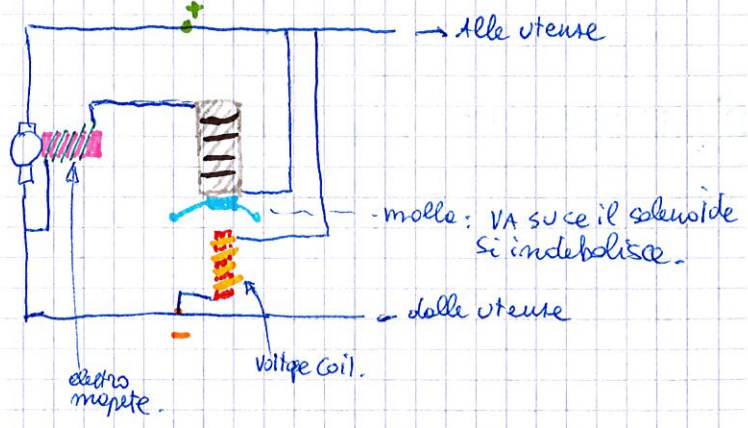 +
→ Alle utenze
molla: VA SU CE il solenoide
si indebolisce.
← dalle utenze
-
voltge coil.
elettro
magnete.